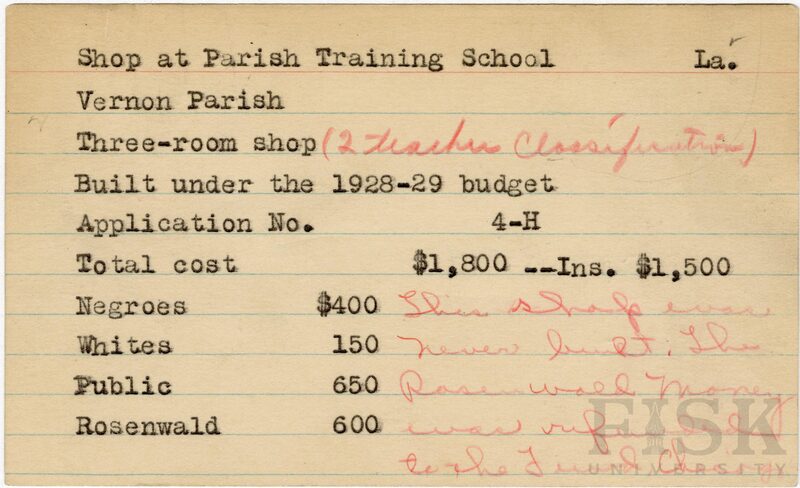 Shop at Parish Training School La.
Vernon Parish
Three-room shop (2 teacher Classification)
Built under the 1928-29 budget
Application No. 4-H
Total cost $1,800 --Ins. $1,500
Negroes $400 This shop was
Whites 150 never built. The
Public 650 Rosenwald Money
Rosenwald 600 was refunded
to the Fund
FISK
UNIVERSITY